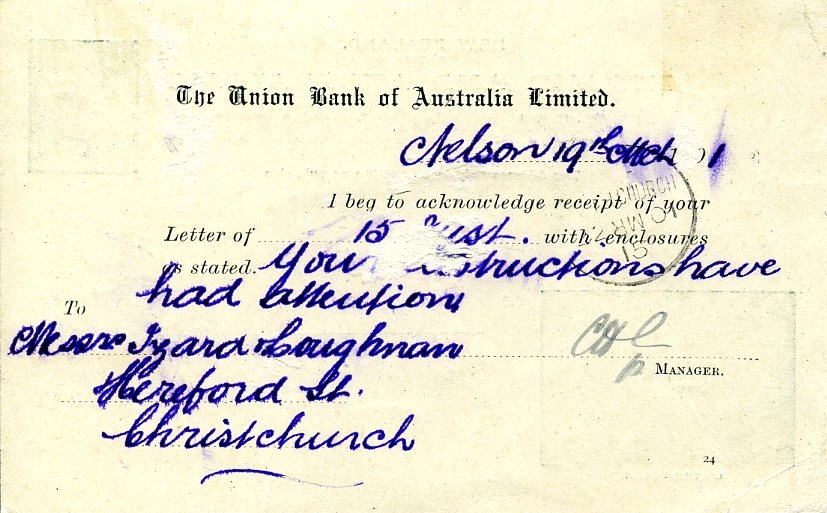 The Union Bank of Australia Limited.
Nelson 19th Mch 1 91
I beg to acknowledge receipt of your
Letter of 15 Inst. with enclosures
as stated. Your instructions have
had attention
To
Messrs Izard & Loughnan
Hereford St.
Christchurch
p MANAGER.
24
CHURCH
MR
91